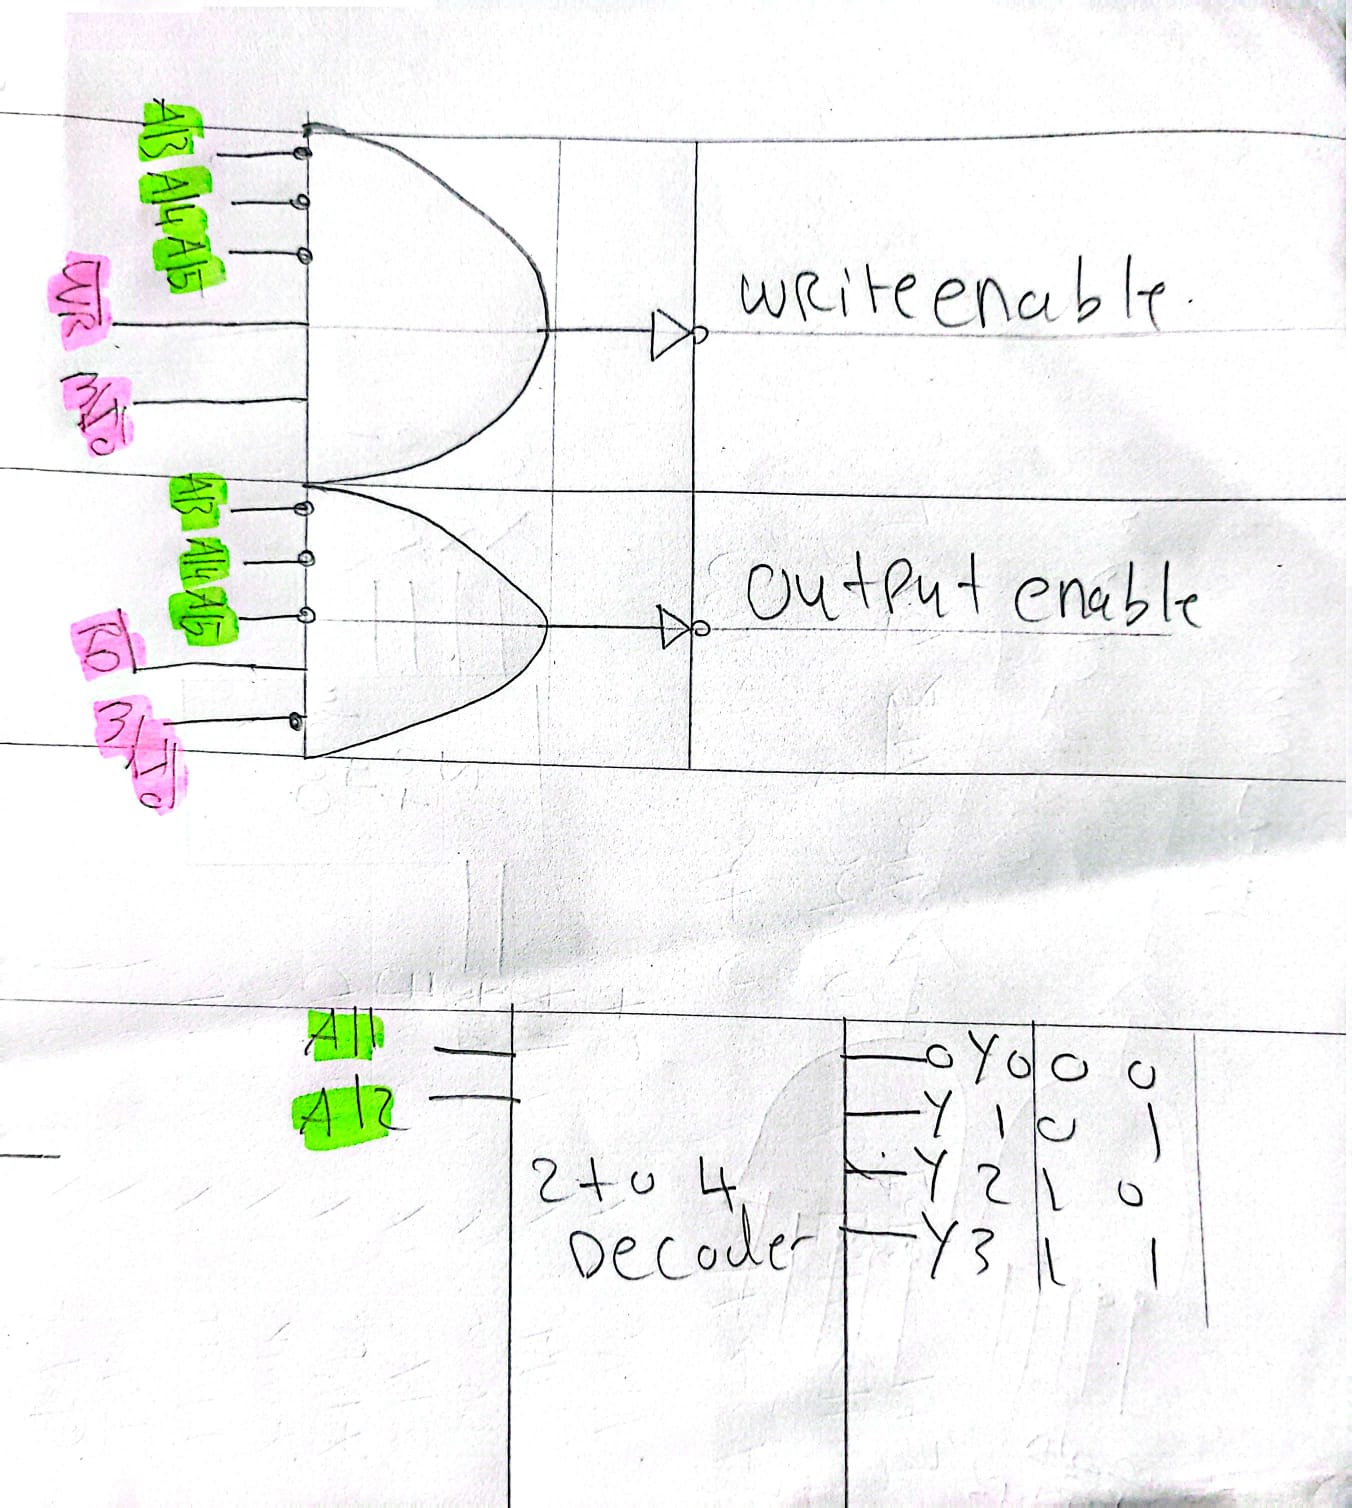 A13
A14
A15
WR
writeenable.
A13
A14
A15
RD
output enable
A11
A12
2 to 4
Decoder
Y0 0 0
Y1 0 1
Y2 1 0
Y3 1 1